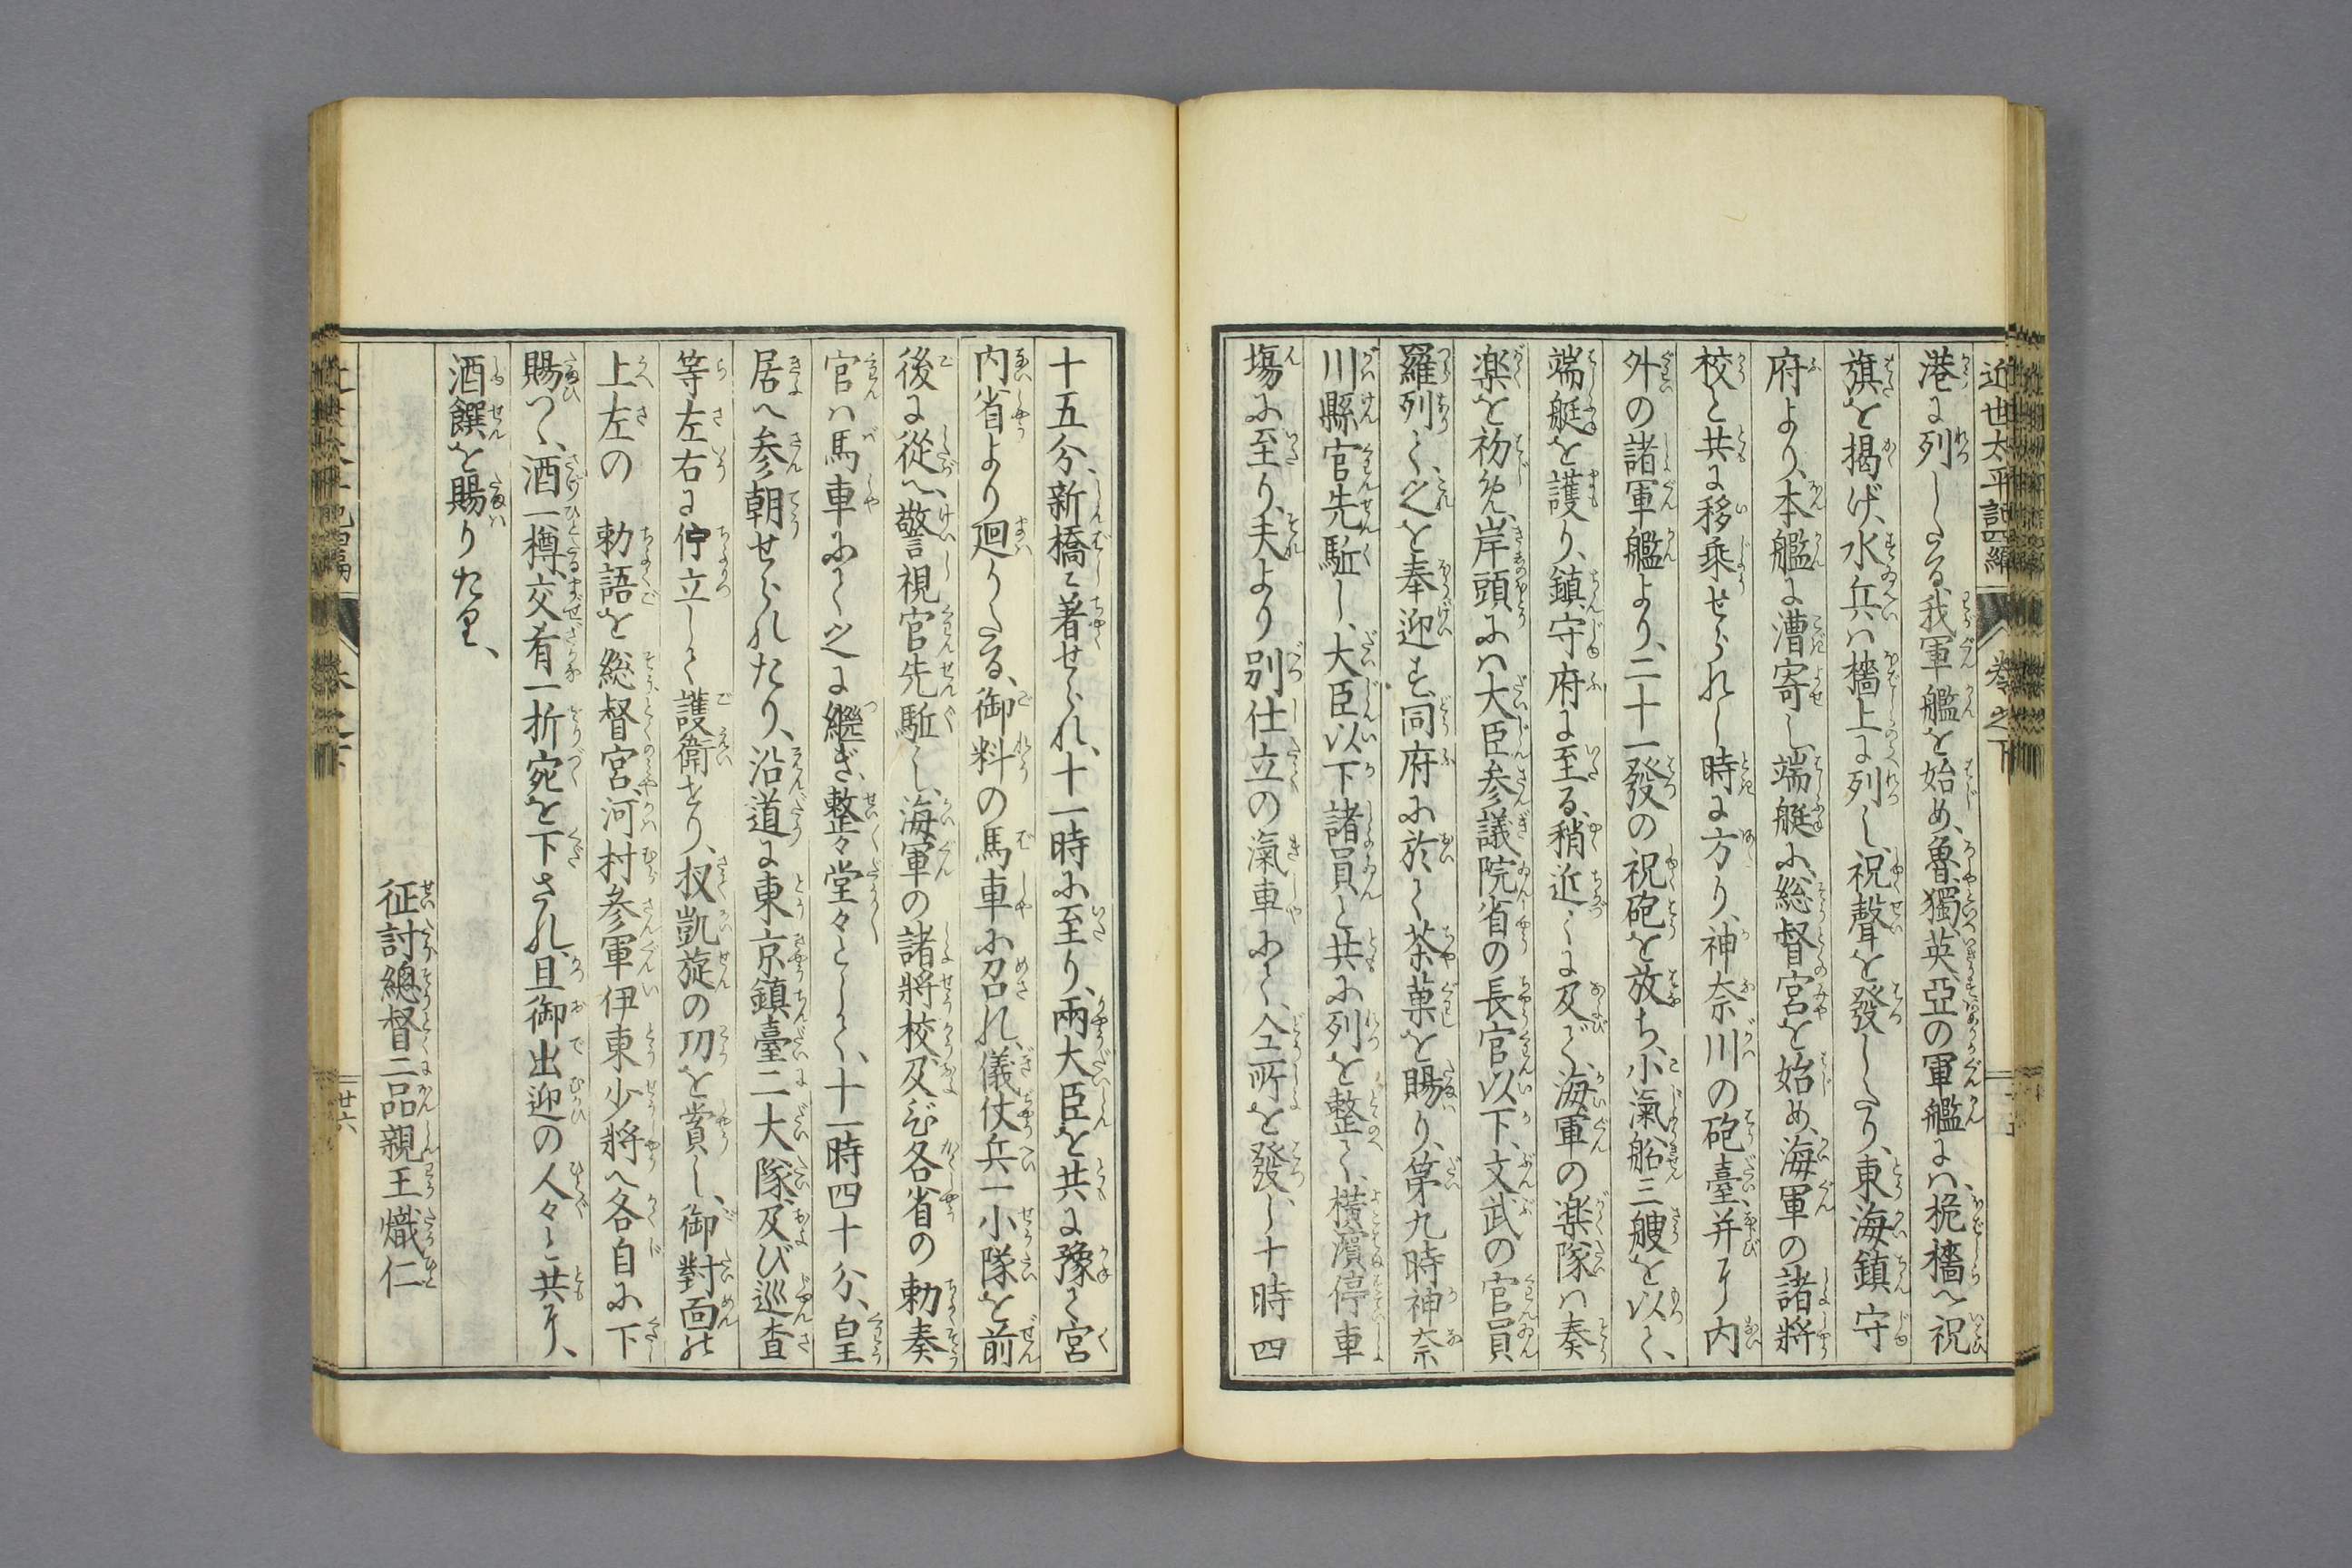 近世太平記四編 卷之下
港に列したる、我軍艦を始め、魯獨英亞の軍艦にハ、桅檣へ祝
旗を揭げ、水兵ハ檣上に列し、祝聲を發したり、東海鎮守
府より、本艦に漕寄し、端艇に、総督宮を始め、海軍の諸將
校と共に移乗せられし時に方り、神奈川の砲臺、并に内
外の諸軍艦より、二十一發の祝砲を放ち、小滊船三艘を以て、
端艇を護り、鎮守府に至る、稍近くに及びて、海軍の楽隊ハ奏
楽を初めん、岸頭にハ大臣参議院省の長官以下、文武の官員
羅列して、之を奉迎す、同府に於て茶菓を賜り、第九時神奈
川縣官先駈し、大臣以下諸員と共に列を整て、横濱停車
塲に至り、夫より別仕立の滊車にて、仝所を發し、十時四
十五分、新橋に著せられ、十一時に至り、兩大臣を共に豫て宮
内省より廻りたる、御料の馬車に召れ、儀仗兵一小隊を前
後に從へ、警視官先駈し、海軍の諸將校及び各省の勅奏
官ハ馬車にて之に繼ぎ、整々堂々として、十一時四十分、皇
居へ参朝せられたり、沿道に東京鎮臺二大隊及び巡査
等左右に佇立して護衛せり、扨凱旋の功を賞し、御對面の
上左の 勅語を総督宮、河村参軍伊東少將へ各自に下
賜つて、酒一樽、交肴一折宛を下され、且御出迎の人々と共に、
酒饌を賜りたり、
征討總督二品親王熾仁
廿六